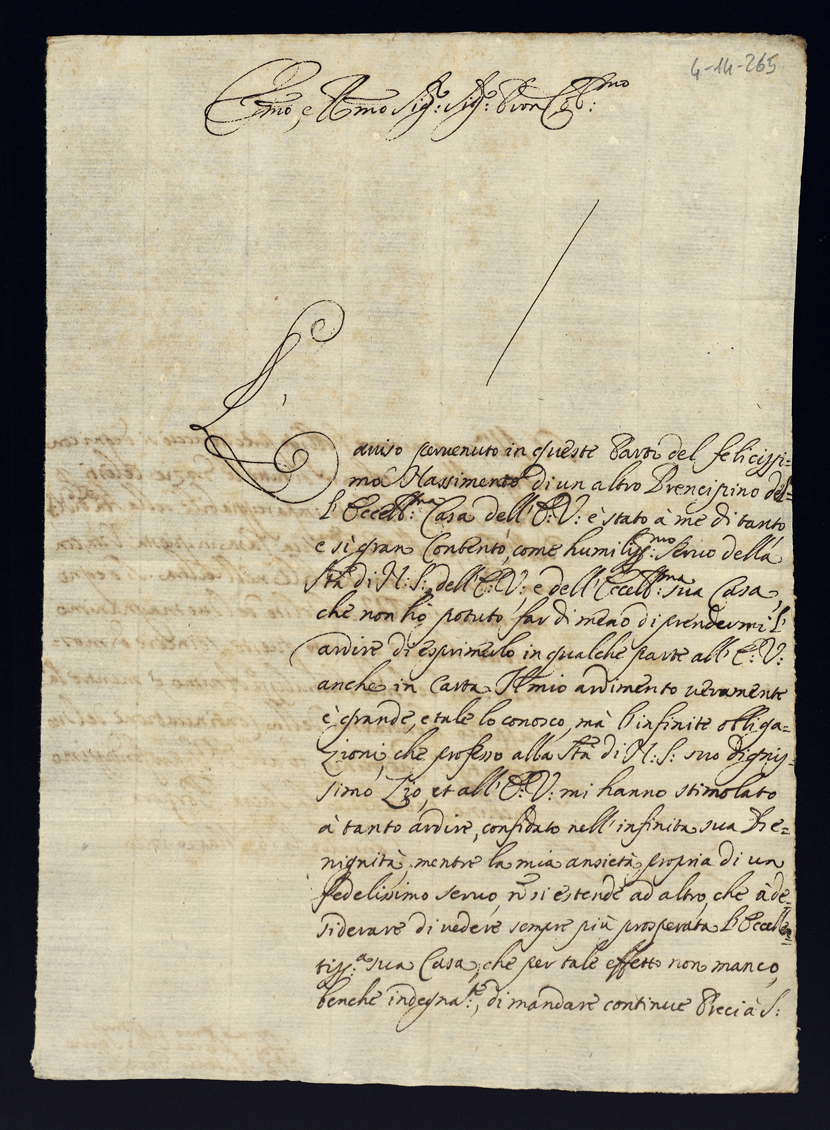 4-14-265
Emo, e Rmo Sig:r Sig:r Pron Col:mo
L'avviso pervenuto in queste Parti del felicissi=
mo Nassimento di un altro Prencipino del=
l'Eccell:ma Casa dell'E: V: è stato à me di tanto
e sì gran Contento, come humiliss:mo servo della
Stà di N: S: dell'E: V: e dell'Eccell:ma sua Casa,
che non hò potuto far di meno di prendermi l'
ardire di esprimerlo in qualche parte all'E: V:
anche in Carta. Il mio ardimento veramente
è grande, e tale lo conosco, mà l'infinite obliga=
zioni, che professo alla Stà di N: S: suo Dignis=
simo Zio, et all'E: V: mi hanno stimolato
à tanto ardire, confidato nell'infinita sua Be=
nignità, mentre la mia ansietà propria di un
fedelissimo servo, nõ si estende ad altro, che à de=
siderare di vedere sempre più prosperata l'Eccellen=
tiss:a sua Casa, che per tale effetto non manco,
benche indegna:te, di mandare continue Preci à S: